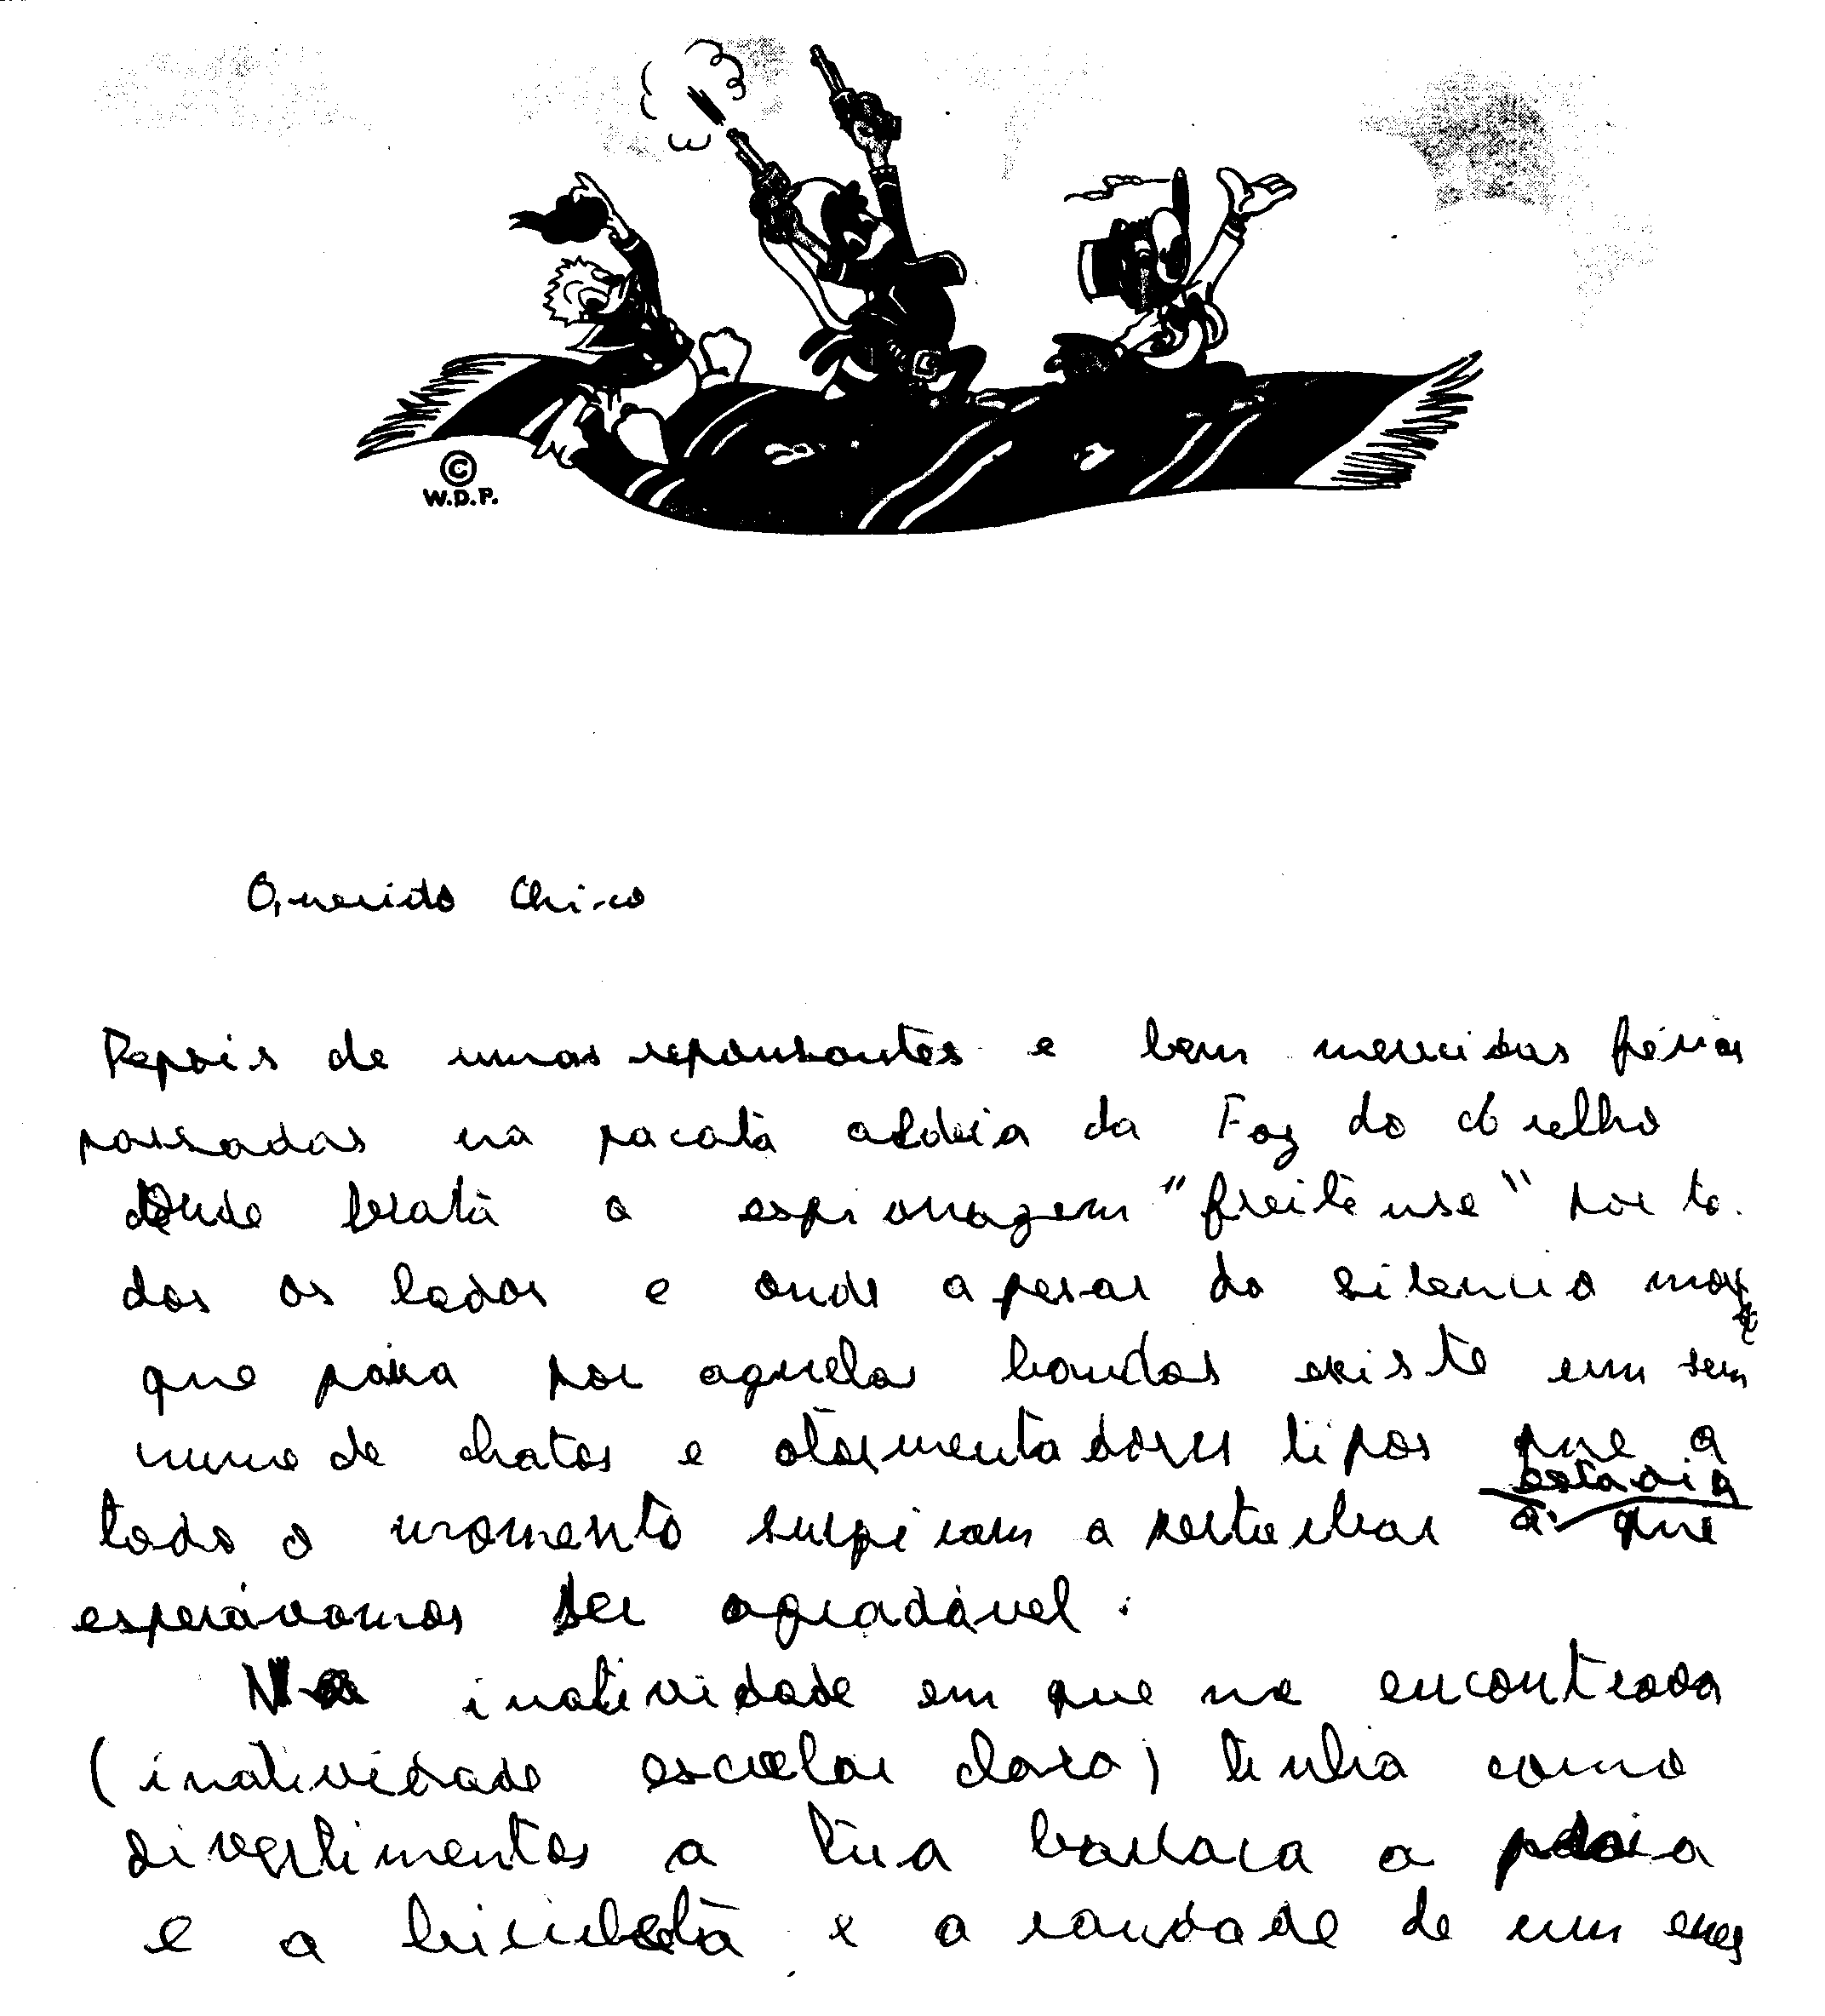 © W.D.P.
Querido Chico
Depois de umas repousantes e bem merecidas férias
passadas na pacata aldeia da Foz do Arelho
donde brata a espionagem "freitense" por to.
dos os lados e onde apesar do silencio
que paira por aquelas bandas existe um sem
numero de chatos e atormentadores tipos que a
todo o momento suspiram a perturbar a estadia que
esperávamos ser agradável.
Na inatividade em que me encontrava
(inatividade escolar claro) tinha como
divertimentos a tua barraca a praia
e a bicicleta e a saudade de um